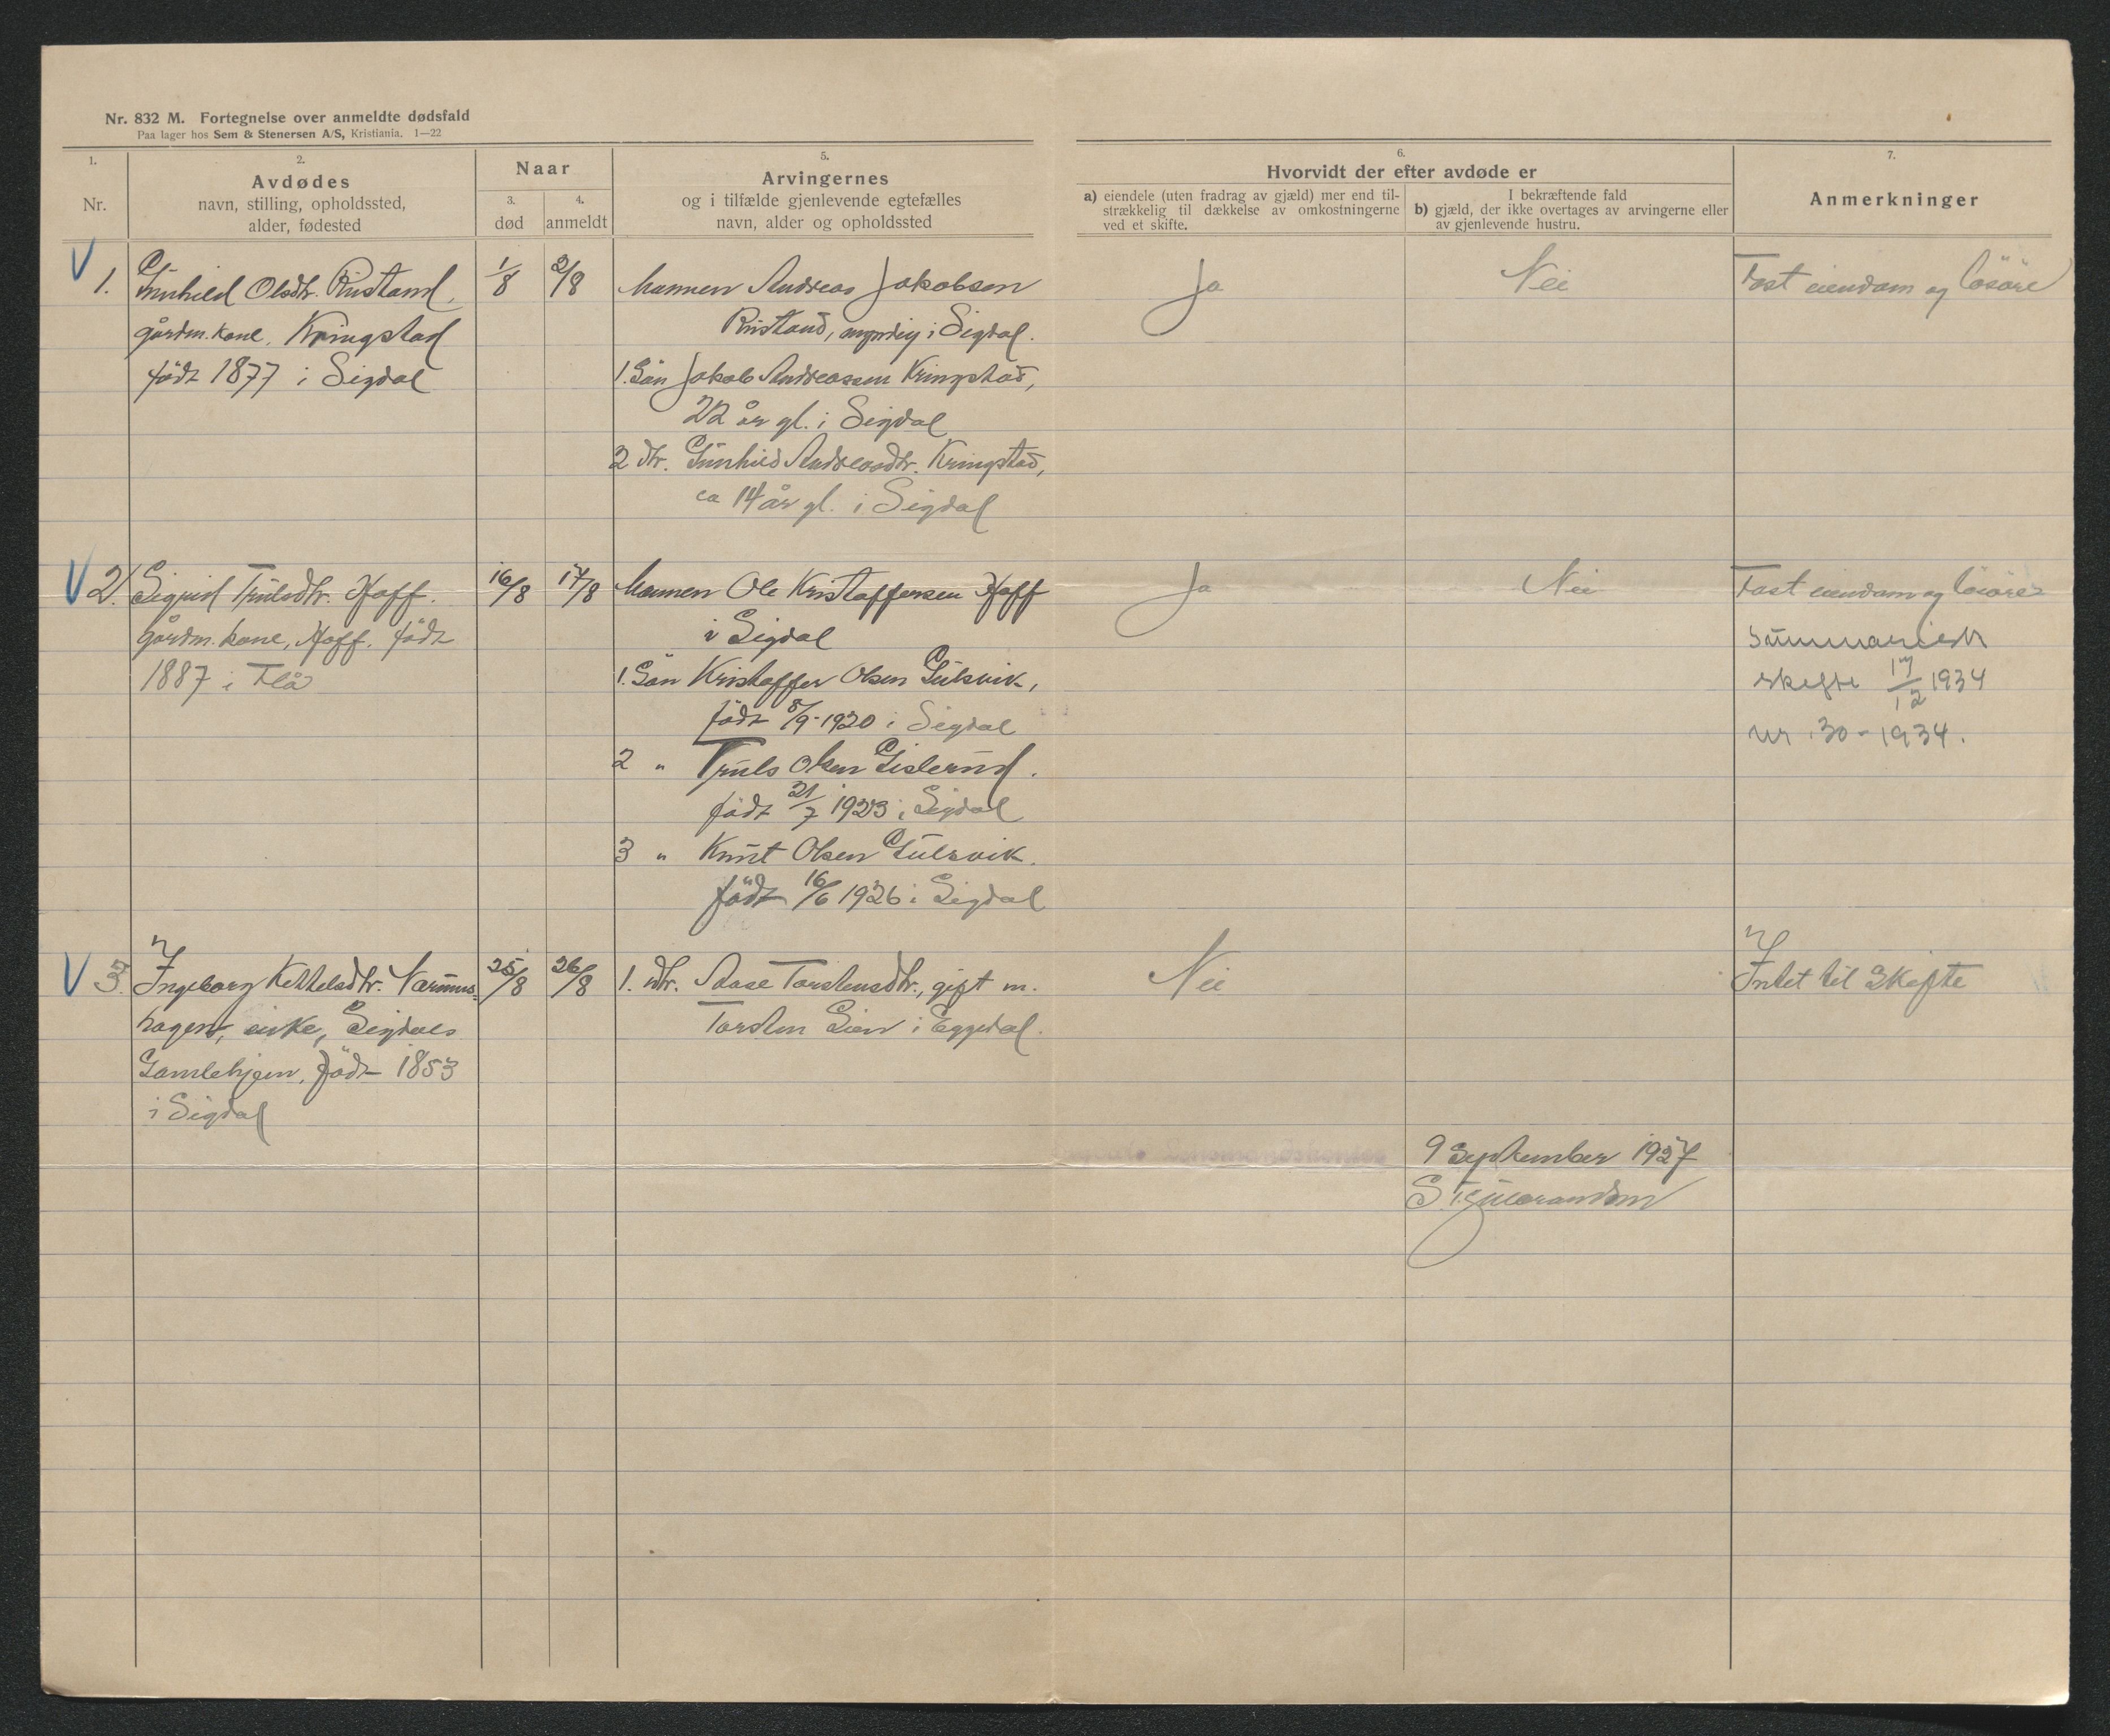 Nr. 832 M. Fortegnelse over anmeldte dødsfald
Paa lager hos Sem & Stenersen A/S, Kristiania. 1—22
1.
Nr.
2.
Avdødes
navn, stilling, opholdssted,
alder, fødested
Naar
3.
død
4.
anmeldt
5.
Arvingernes
og i tilfælde gjenlevende egtefælles
navn, alder og opholdssted
6.
Hvorvidt der efter avdøde er
a) eiendele (uten fradrag av gjæld) mer end til-
strækkelig til dækkelse av omkostningerne
ved et skifte.
I bekræftende fald
b) gjæld, der ikke overtages av arvingerne eller
av gjenlevende hustru.
7.
Anmerkninger
V 1.
Gunhild Olsdtr. Rustand,
gårdm.kone, Kringstad
född 1877 i Sigdal
1/8
2/8
Mannen Andreas Jakobsen
Rustand, i Sigdal.
1. Sön Jakob Andreassen Kringstad,
22 år gl. i Sigdal
2 dtr. Gunhild Andreasdtr. Kringstad,
ca 14 år gl. i Sigdal
Ja
Nei
Fast eiendom og lösöre
V 2.
Sigrid Trulsdtr. Hoff.
gårdm.kone, Hoff. född
1887 i Flå
16/8
17/8
Mannen Ole Kristoffersen Hoff
i Sigdal
1. Sön Kristoffer Olsen Gulsvik,
född 8/9-1920 i Sigdal
2 " Truls Olsen Gislerud.
född 21/7 1923 i Sigdal
3 " Knut Olsen Gulsvik.
född 16/6 1926 i Sigdal
Ja
Nei
Fast eiendom og lösöre
Summarisk
skifte 17/12 1934
nr. 30-1934.
V 3.
Ingeborg Kittelsdtr.
hagen, enke, Sigdals
Gamlehjem, född 1853
i Sigdal
25/8
26/8
1. dtr. Aase Torstensdtr., gift m.
Torsten Lien i Eggedal.
Nei
Intet til Skifte
9 September 1927